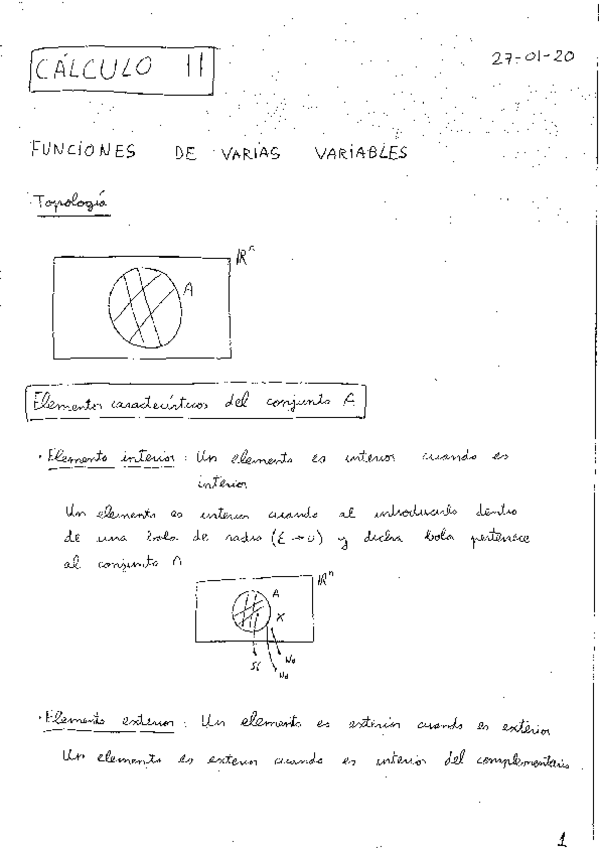 CÁLCULO II
27-01-20
FUNCIONES DE VARIAS VARIABLES
Topología
ℝⁿ
A
Elementos característicos del conjunto A
· Elemento interior : Un elemento es interior cuando es
interior
Un elemento es interior cuando al introducirlo dentro
de una bola de radio (ε→0) y dicha bola pertenece
al conjunto A
ℝⁿ
A
X
Sí
No
No
· Elemento exterior : Un elemento es exterior cuando es exterior
Un elemento es exterior cuando es interior del complementario
1